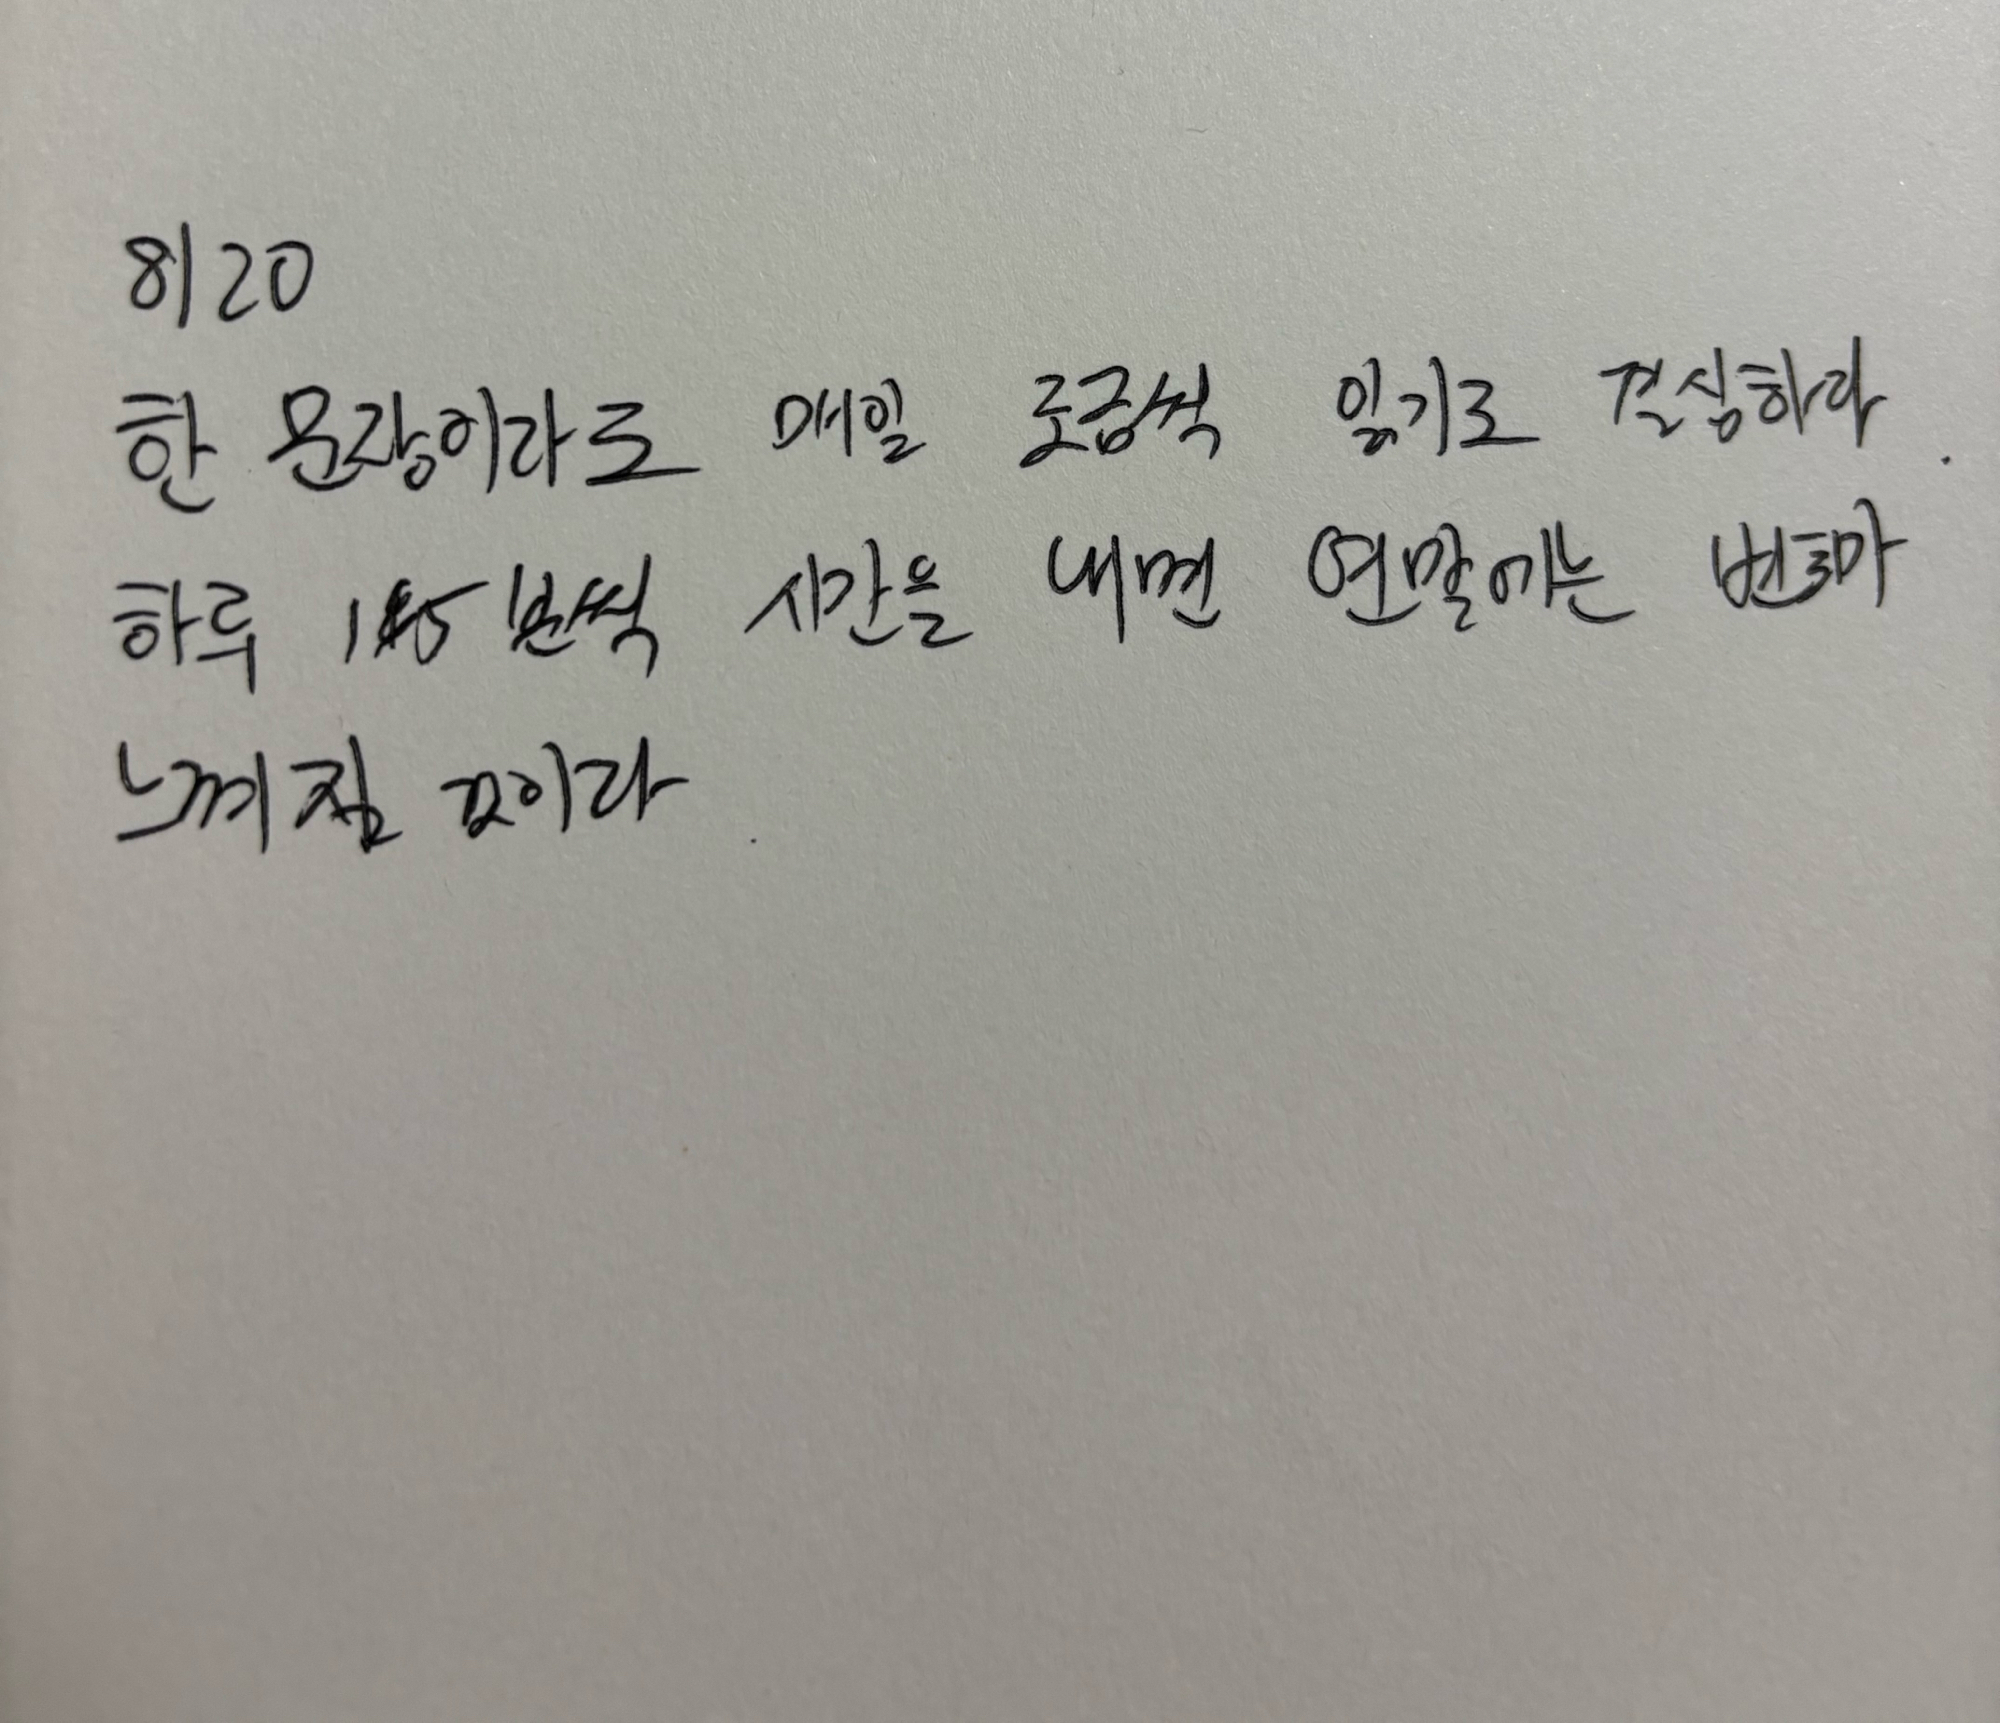 8/20
한 문장이라도 매일 조금씩 읽기로 결심하라.
하루 15분씩 시간을 내면 연말에는 변화가
느껴질 것이다.